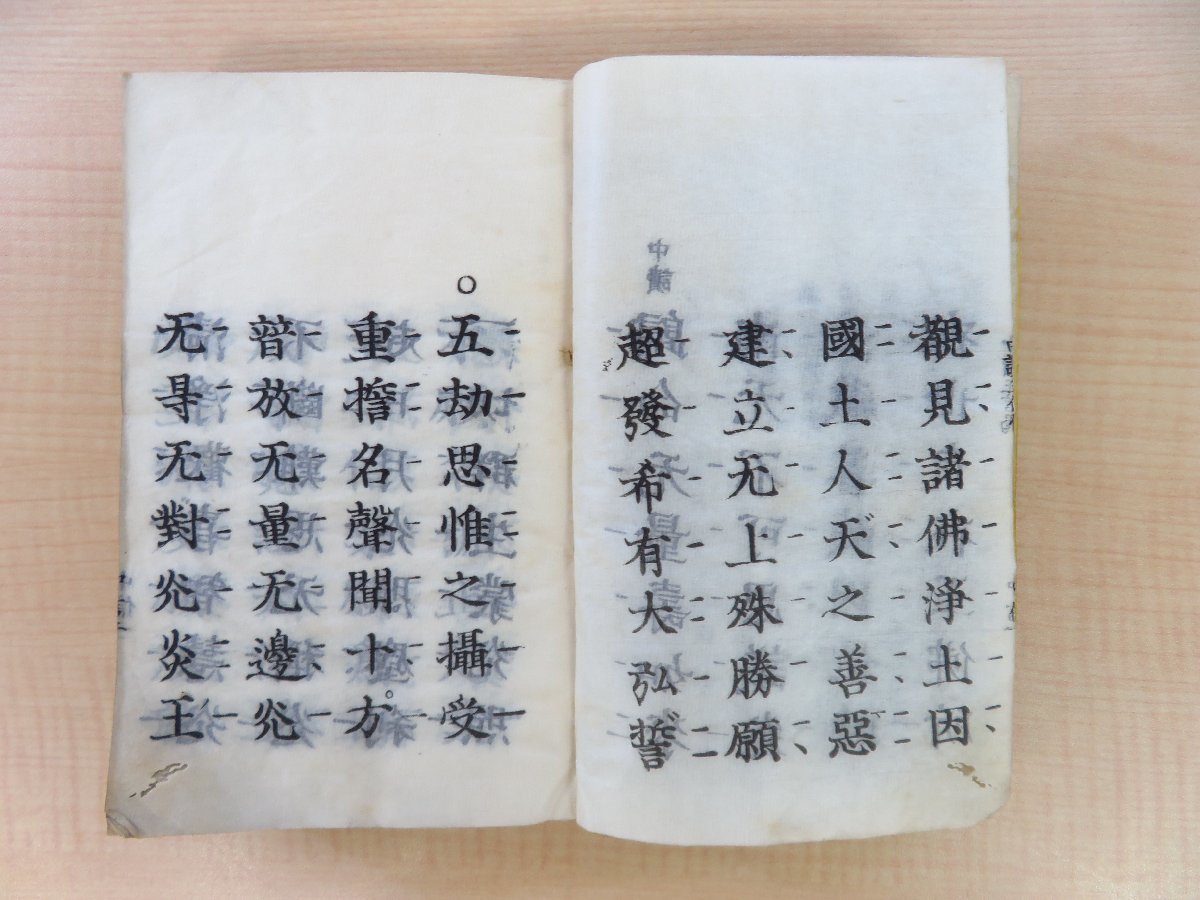 覩見諸佛淨土因
國土人天之善惡
建立无上殊勝願
中讀
超發希有大弘誓
○五劫思惟之攝受
重擔名聲聞十方
普放无量无邊光
无㝵无對光炎王